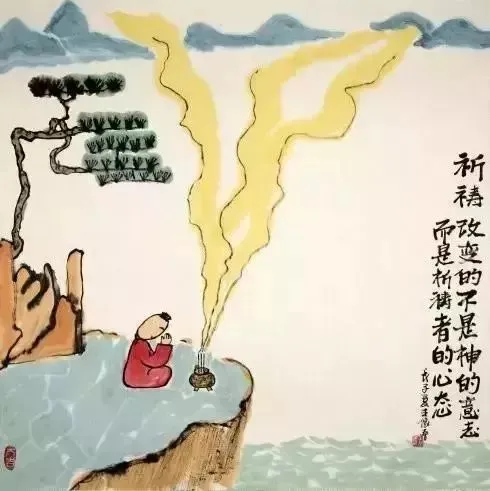 祈祷
改变的不是神的意志
而是祈祷者的心态
戊子夏